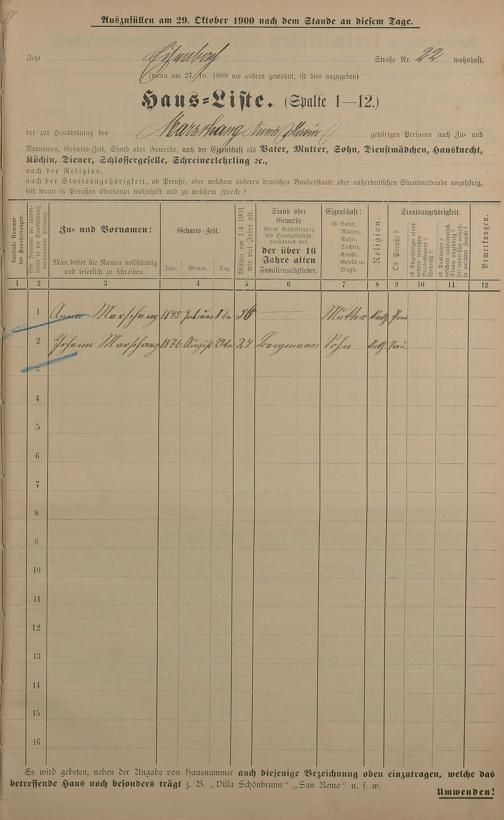 Auszufüllen am 29. Oktober 1900 nach dem Stande an diesem Tage.
Jetzt Straße Nr. 22 wohnhaft.
(wenn am 27/10. 1899 wo anders gewohnt, ist dies anzugeben)
Haus=Liste. (Spalte 1—12.)
der zur Haushaltung des Marschang gehörigen Personen nach Zu- und
Vornamen, Geburts-Zeit, Stand oder Gewerbe, nach der Eigenschaft als Vater, Mutter, Sohn, Dienstmädchen, Hausknecht,
Köchin, Diener, Schlossergeselle, Schreinerlehrling ꝛc.,
nach der Religion,
nach der Staatsangehörigkeit, ob Preuße, oder welchen anderen deutschen Bundesstaate oder außerdeutschen Staatsverbande angehörig,
seit wann in Preußen überhaupt wohnhaft und zu welchem Zwecke?
Zu- und Vornamen:
Man bittet die Namen vollständig
und leserlich zu schreiben.
Geburts-Zeit.
Jahr. Monat. Tag.
Stand oder
Gewerbe
der über 16
Jahre alten
Familienmitglieder.
Eigenschaft:
ob Vater,
Mutter,
Sohn,
Tochter,
Knecht,
Geselle ꝛc.
Magd.
Religion.
Staatsangehörigkeit.
Ob Preuße?
Bemerkungen.
1 2 3 4 5 6 7 8 9 10 11 12
1 Anna Marschang 1845 56 Mutter kath. Preu
2 Johann Marschang 1876 August 24 Bergmann Sohn kath. Preu.
3
4
5
6
7
8
9
10
11
12
13
14
15
16
Es wird gebeten, neben der Angabe von Hausnummer auch diejenige Bezeichnung oben einzutragen, welche das
betreffende Haus noch besonders trägt z. B. „Villa Schönbrunn" „San Remo" u. s. w.
Umwenden!